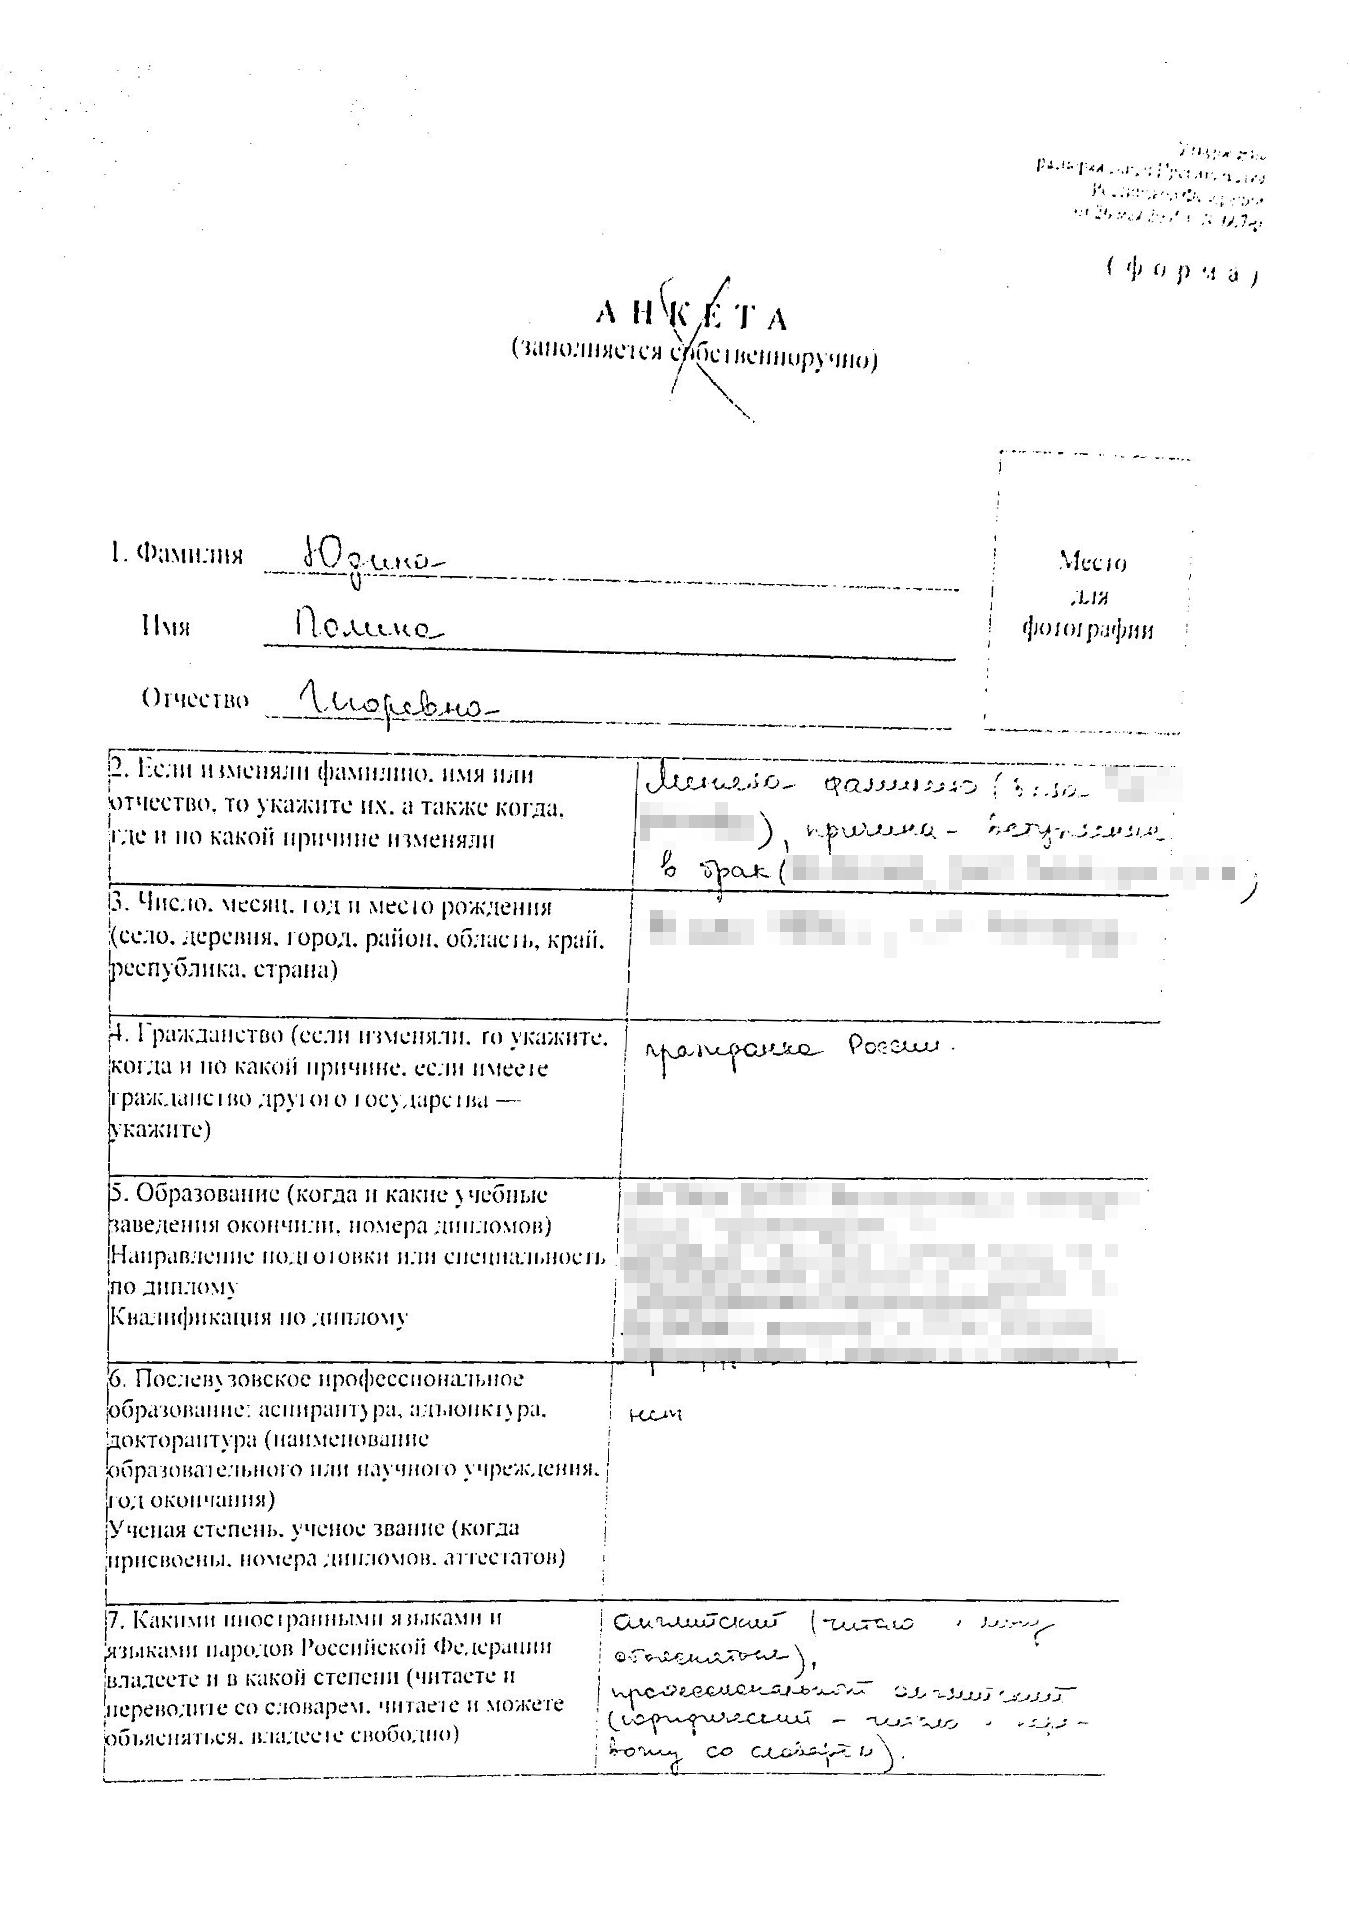 (форма)
АНКЕТА
(заполняется собственноручно)
Место
для
фотографии
1. Фамилия Юдина
Имя Полина
Отчество Игоревна
2. Если изменяли фамилию, имя или
отчество, то укажите их, а также когда,
где и по какой причине изменяли
Меняла фамилию (была
), причина - вступление
в брак (
)
3. Число, месяц, год и место рождения
(село, деревня, город, район, область, край,
республика, страна)
4. Гражданство (если изменяли, то укажите,
когда и по какой причине, если имеете
гражданство другого государства —
укажите)
гражданка России.
5. Образование (когда и какие учебные
заведения окончили, номера дипломов)
Направление подготовки или специальность
по диплому
Квалификация по диплому
6. Послевузовское профессиональное
образование: аспирантура, адъюнктура,
докторантура (наименование
образовательного или научного учреждения,
год окончания)
Ученая степень, ученое звание (когда
присвоены, номера дипломов, аттестатов)
нет
7. Какими иностранными языками и
языками народов Российской Федерации
владеете и в какой степени (читаете и
переводите со словарем, читаете и можете
объясняться, владеете свободно)
английский (читаю и могу
объясняться),
профессиональный английский
(юридический - читаю и пере-
вожу со словарём).